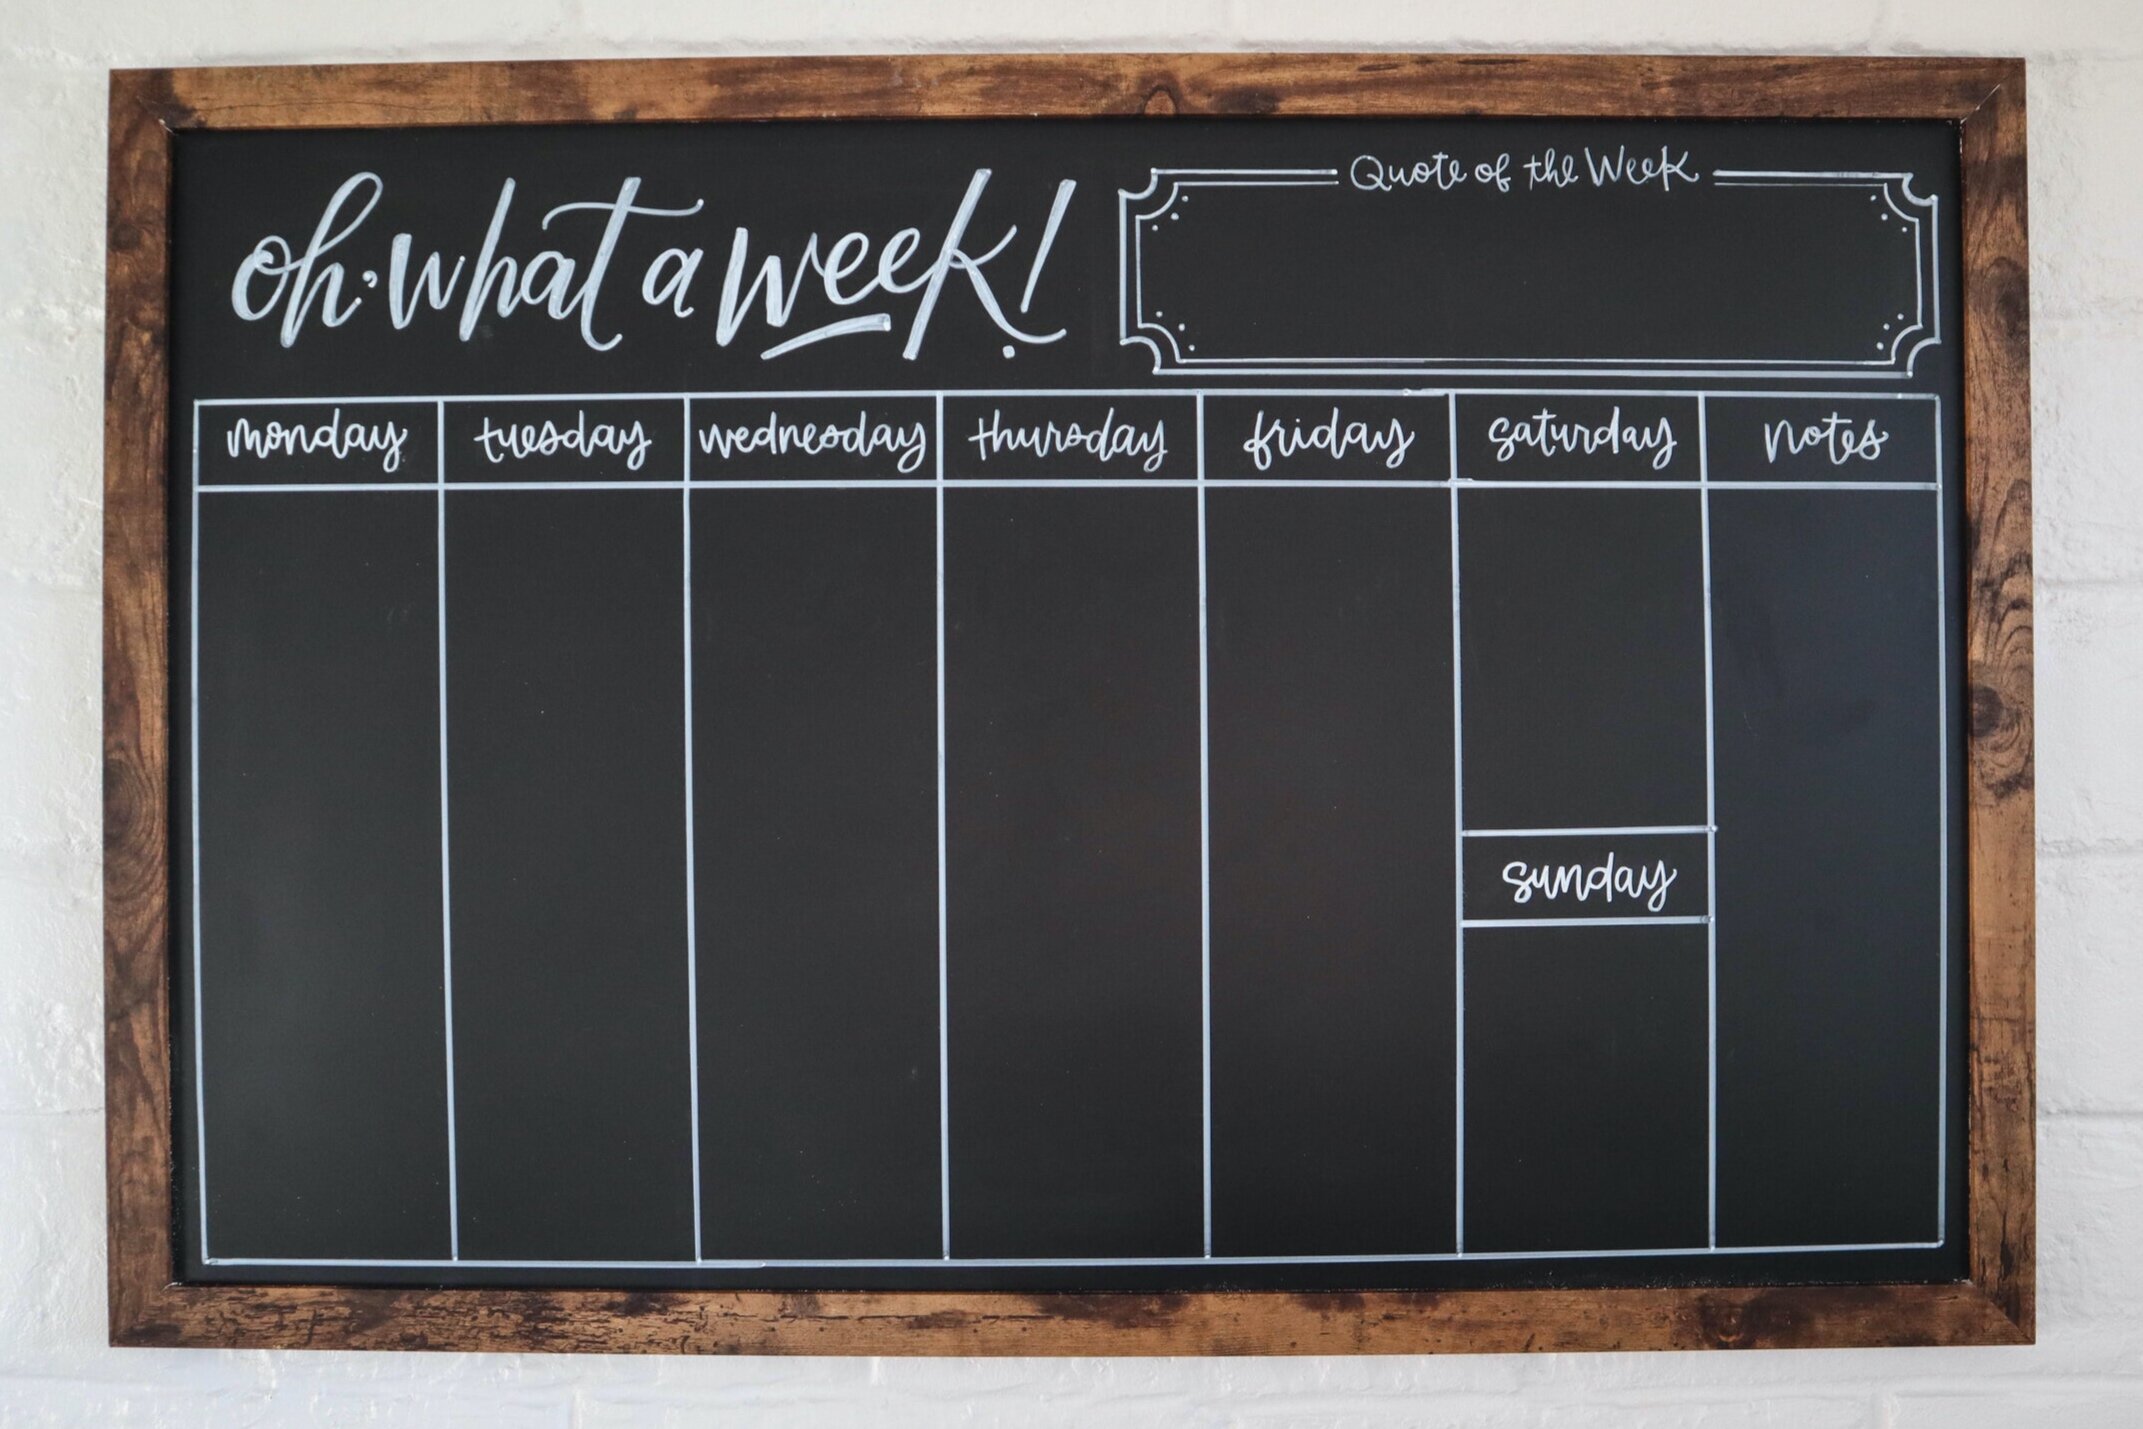 oh, what a week!
Quote of the Week
monday tuesday wednesday thursday friday saturday notes
sunday